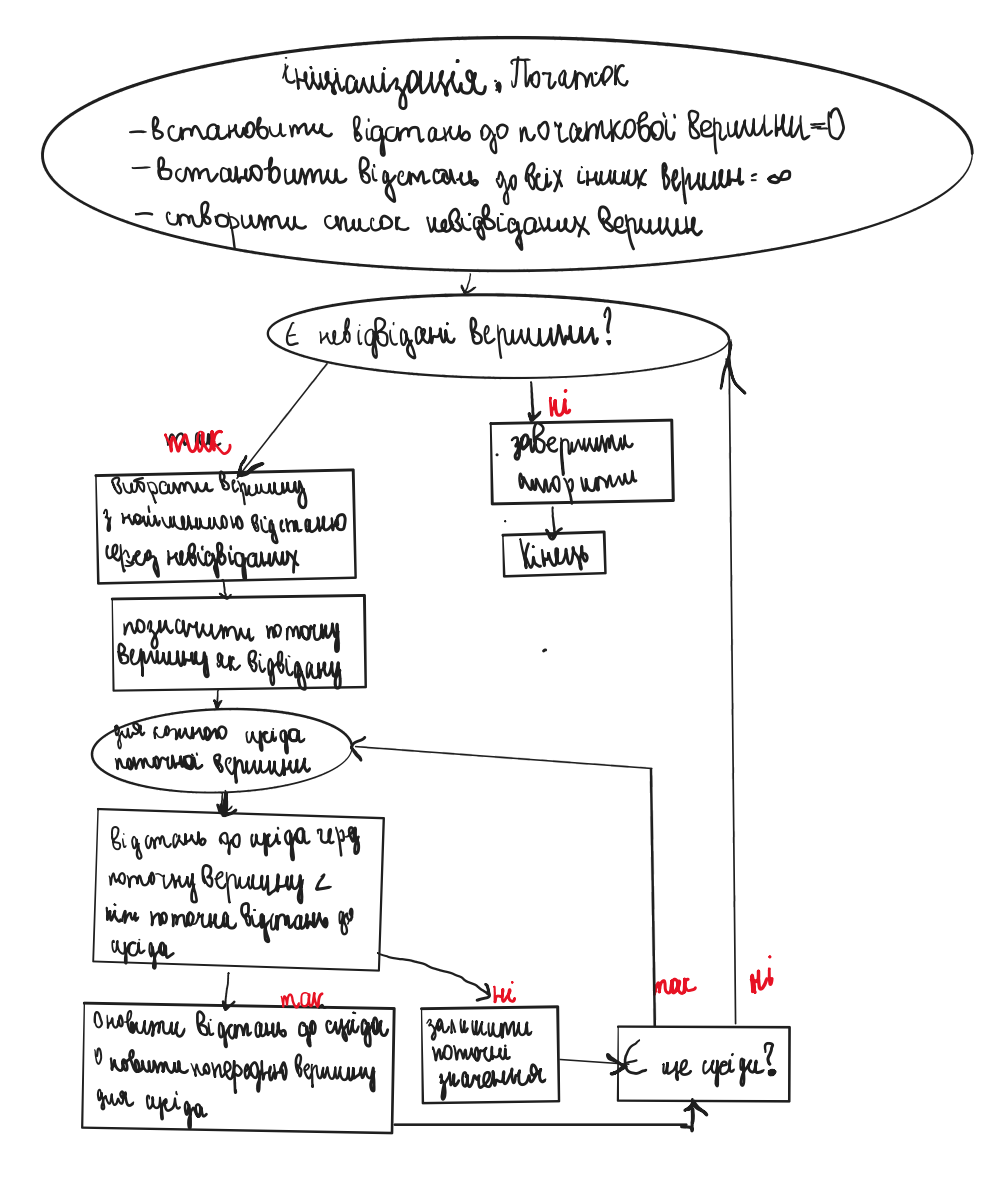 ініціалізація. Початок
- встановити відстань до початкової вершини=0
- встановити відстань до всіх інших вершин = ∞
- створити список невідвіданих вершин
Є невідвідані вершини?
ні
так
завершити
алгоритм
вибрати вершину
з найменшою відстаню
серез невідвіданих
Кінець
позначити поточну
вершину як відвідану
для кожного сусіда
поточної вершини
відстань до сусіда через
поточну вершину <
ніж поточна відстань до
сусіда
так
ні
так
ні
Оновити відстань до сусіда
Оновити попередню вершину
для сусіда
залишити
поточні
значення
Є ще сусіди?